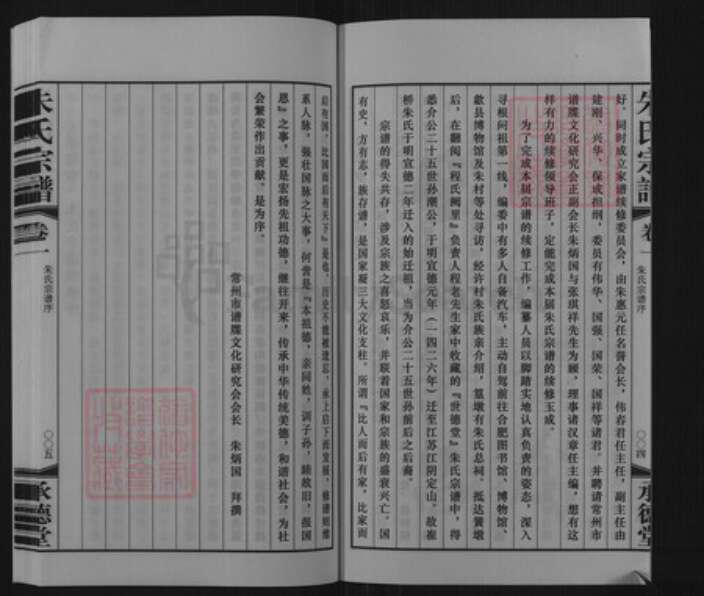 朱氏宗譜
卷一
朱氏宗谱序
〇〇四
承德堂
好。同时成立家谱续修委员会，由朱惠元任名誉会长，伟春君任主任，副主任由
建刚、兴华、保成担纲，委员有伟华、国强、国荣、国祥等诸君，并聘请常州市
谱牒文化研究会正副会长朱炳国与张琪祥先生为顾，理事诸汉章任主编，想有这
样有力的续修领导班子，定能完成本届朱氏宗谱的续修玉成。
为了完成本届宗谱的续修工作，编纂人员以脚踏实地认真负责的姿态，深入
寻根问祖第一线，编委中有多人自备汽车，主动自驾前往合肥图书馆、博物馆、
歙县博物馆及朱村等处寻访，经许村朱氏族亲介绍，篁墩有朱氏总祠。抵达篁墩
后，在翻阅『程氏阙里』负责人程老先生家中收藏的『世德堂』朱氏宗谱中，得
悉介公二十五世孙潮公，于明宣德元年（一四二六年）迁至江苏江阴定山。故崔
桥朱氏于明宣德二年迁入的始迁祖，当为介公二十五世孙前后之后裔。
宗谱的得失共存，涉及宗族之喜怒哀乐，并联着国家和宗族的盛衰兴亡。国
有史，方有志，族存谱，是国家凝三大文化支柱。所谓『比人而后有家，比家而
后有国，比国而后有天下』是也。历史不能被遗忘，承上启下而发展，修谱则维
系人脉，强壮国脉之大事，何尝是『本祖德，亲同姓，训子孙，睦故旧，报国
恩』之事，更是宏扬先祖功德，继往开来，传承中华传统美德，和谐社会，为社
会繁荣作出贡献。是为序。
常州市谱牒文化研究会会长　朱炳国　拜撰
朱氏宗譜
卷一
朱氏宗谱序
〇〇五
承德堂